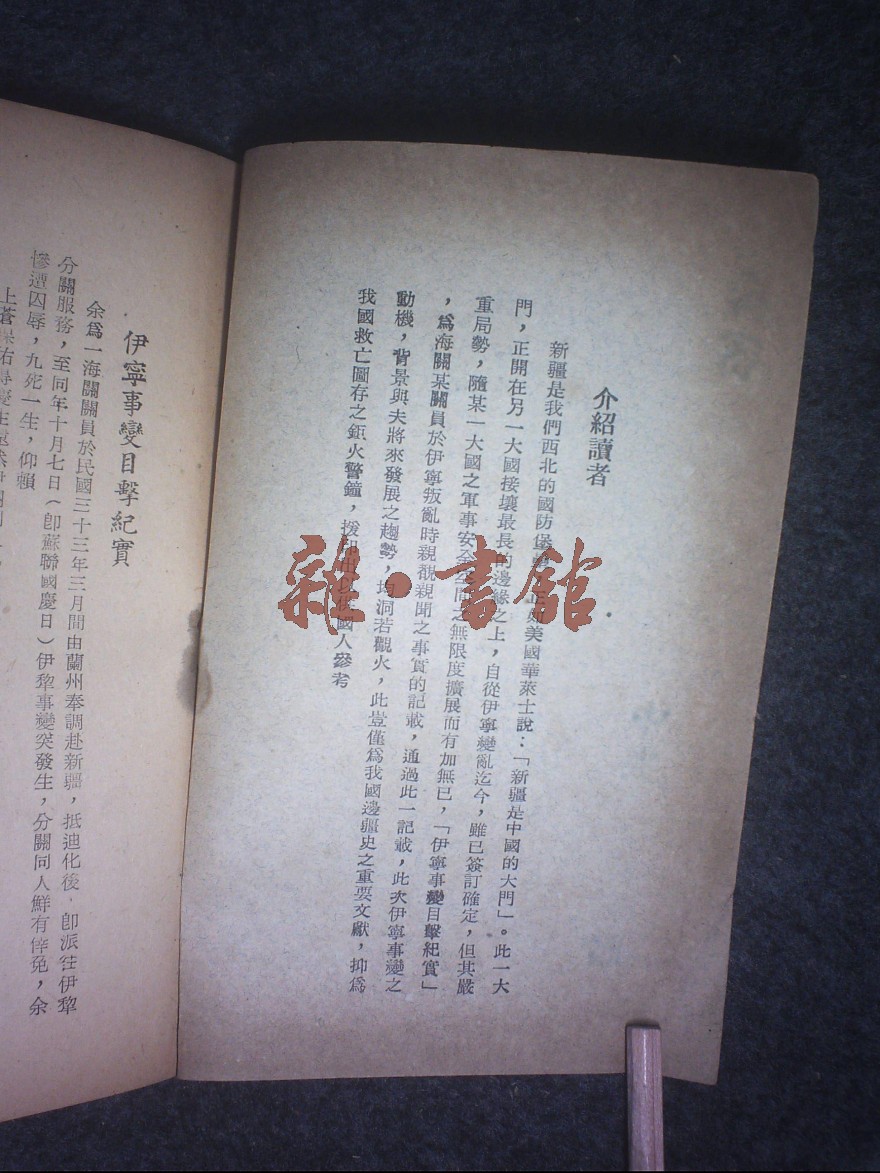 介紹讀者
新疆是我們西北的國防堡壘,正如美國華萊士說:「新疆是中國的大門」。此一大
門,正開在另一大國接壤最長的邊緣之上,自從伊寧變亂迄今,雖已簽訂確定,但其嚴
重局勢,隨某一大國之軍事安全空間之無限度擴展而有加無已,「伊寧事變目擊紀實」
,爲海關某關員於伊寧叛亂時親覩親聞之事實的記載,通過此一記載,此次伊寧事變之
動機,背景與夫將來發展之趨勢,均洞若觀火,此豈僅爲我國邊疆史之重要文獻,抑爲
我國救亡圖存之鉅火警鐘,援印 以供國人參考
伊寧事變目擊紀實
余爲一海關關員於民國三十三年三月間由蘭州奉調赴新疆,抵迪化後,卽派往伊犂
分關服務,至同年十月七日(卽蘇聯國慶日)伊犂事變突發生,分關同人鮮有倖免,余
慘遭囚辱,九死一生,仰賴
上蒼保佑得慶生還
雜·書館